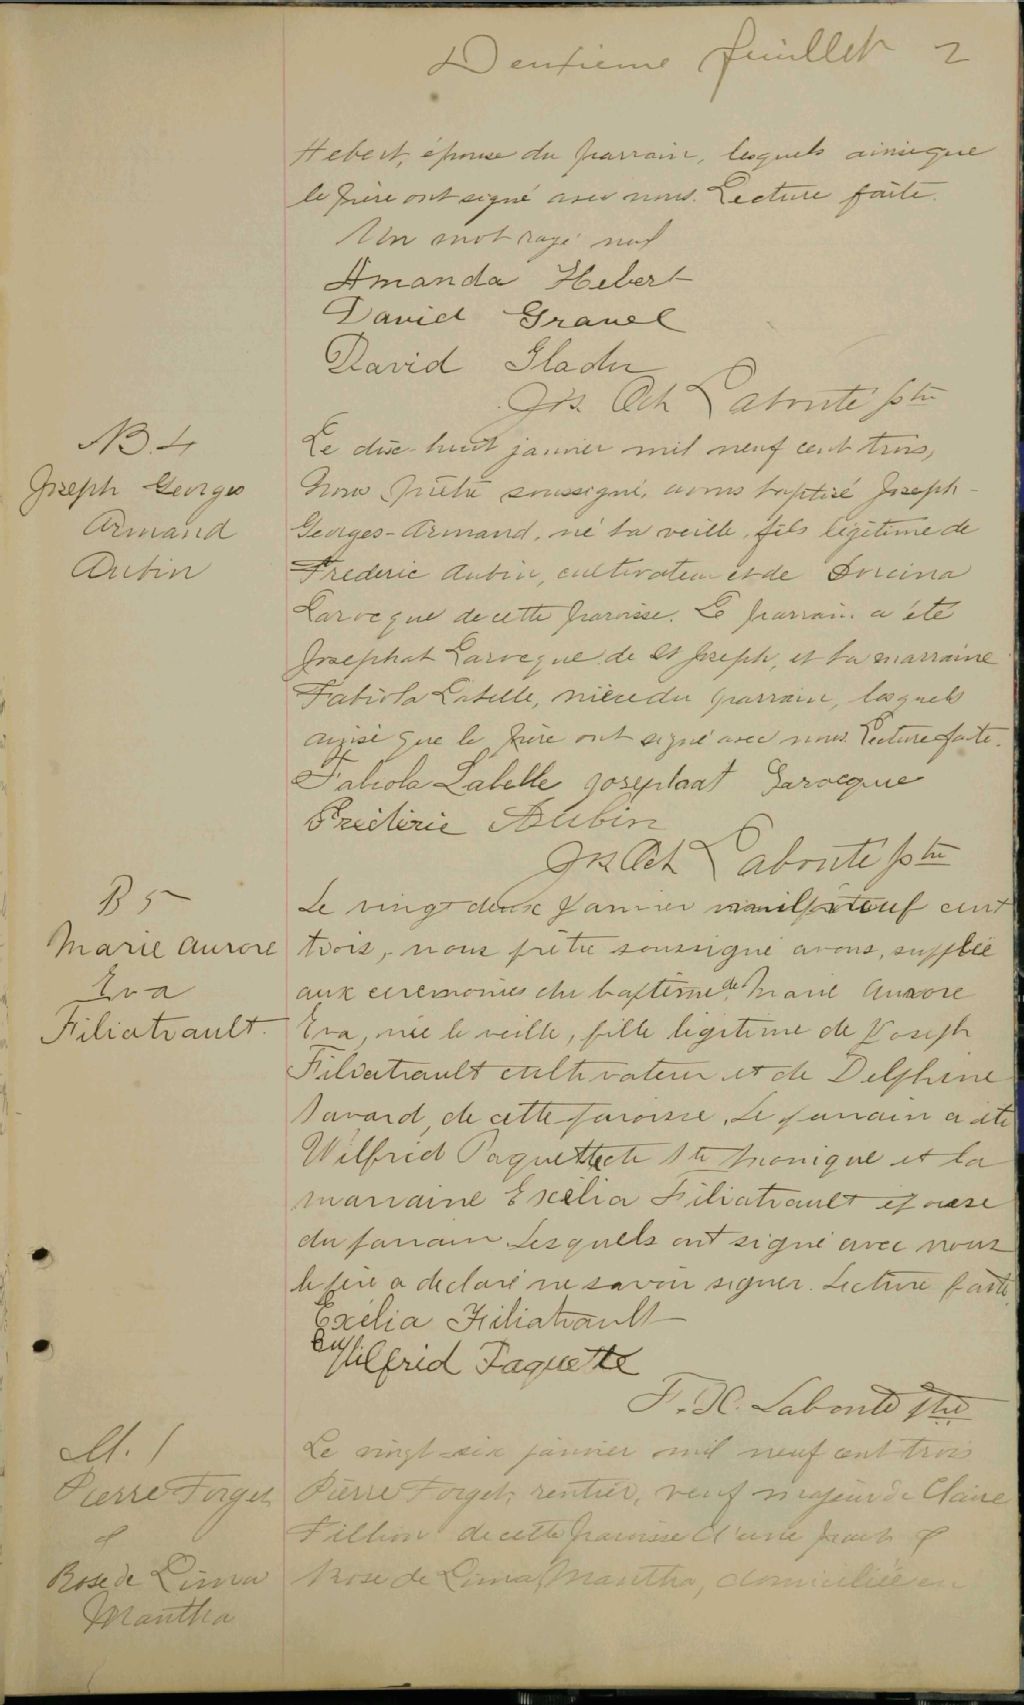 Deuxième feuillet 2
Hebert, épouse du parrain, lesquels ainsi que
le père ont signé avec nous. Lecture faite.
Un mot rayé nul
Amanda Hebert
David Gravel
David Gladu
Jos Oct Labonté ptre
B. 4
Joseph Georges
Armand
Aubin
Le dix-huit janvier mil neuf cent trois,
Nous prêtre soussigné, avons baptisé Joseph-
Georges-Armand, né la veille, fils légitime de
Frederic Aubin, cultivateur et de Dorcina
Larocque de cette paroisse. Le parrain a été
Josephat Larocque de St Joseph, et la marraine
Fabiola Labelle, nièce du parrain, lesquels
ainsi que le père ont signé avec nous. Lecture faite.
Fabiola Labelle Josephat Larocque
Fréderic Aubin
Jos Oct Labonté ptre
B 5
Marie Aurore
Eva
Filiatrault
Le vingt deux Janvier neuf cent
trois, nous prêtre soussigné avons, supplée
aux ceremonies du baptême de Marie Aurore
Eva, née la veille, fille légitime de Joseph
Filiatrault cultivateur et de Delphine
Savard, de cette paroisse. Le parrain a été
Wilfrid Paquette de Ste Monique et la
marraine Exélia Filiatrault épouse
du parrain. Lesquels ont signé avec nous
le père a declaré ne savoir signer. Lecture faite.
Exélia Filiatrault
Wilfrid Paquette
F. X. Labonté ptre
M. 1
Pierre Forget
&
Rose de Lima
Mantha
Le vingt-six janvier mil neuf cent trois
Pierre Forget, rentier, veuf majeur de Claire
Fillion de cette paroisse d'une part &
Rose de Lima Mantha, domiciliée en